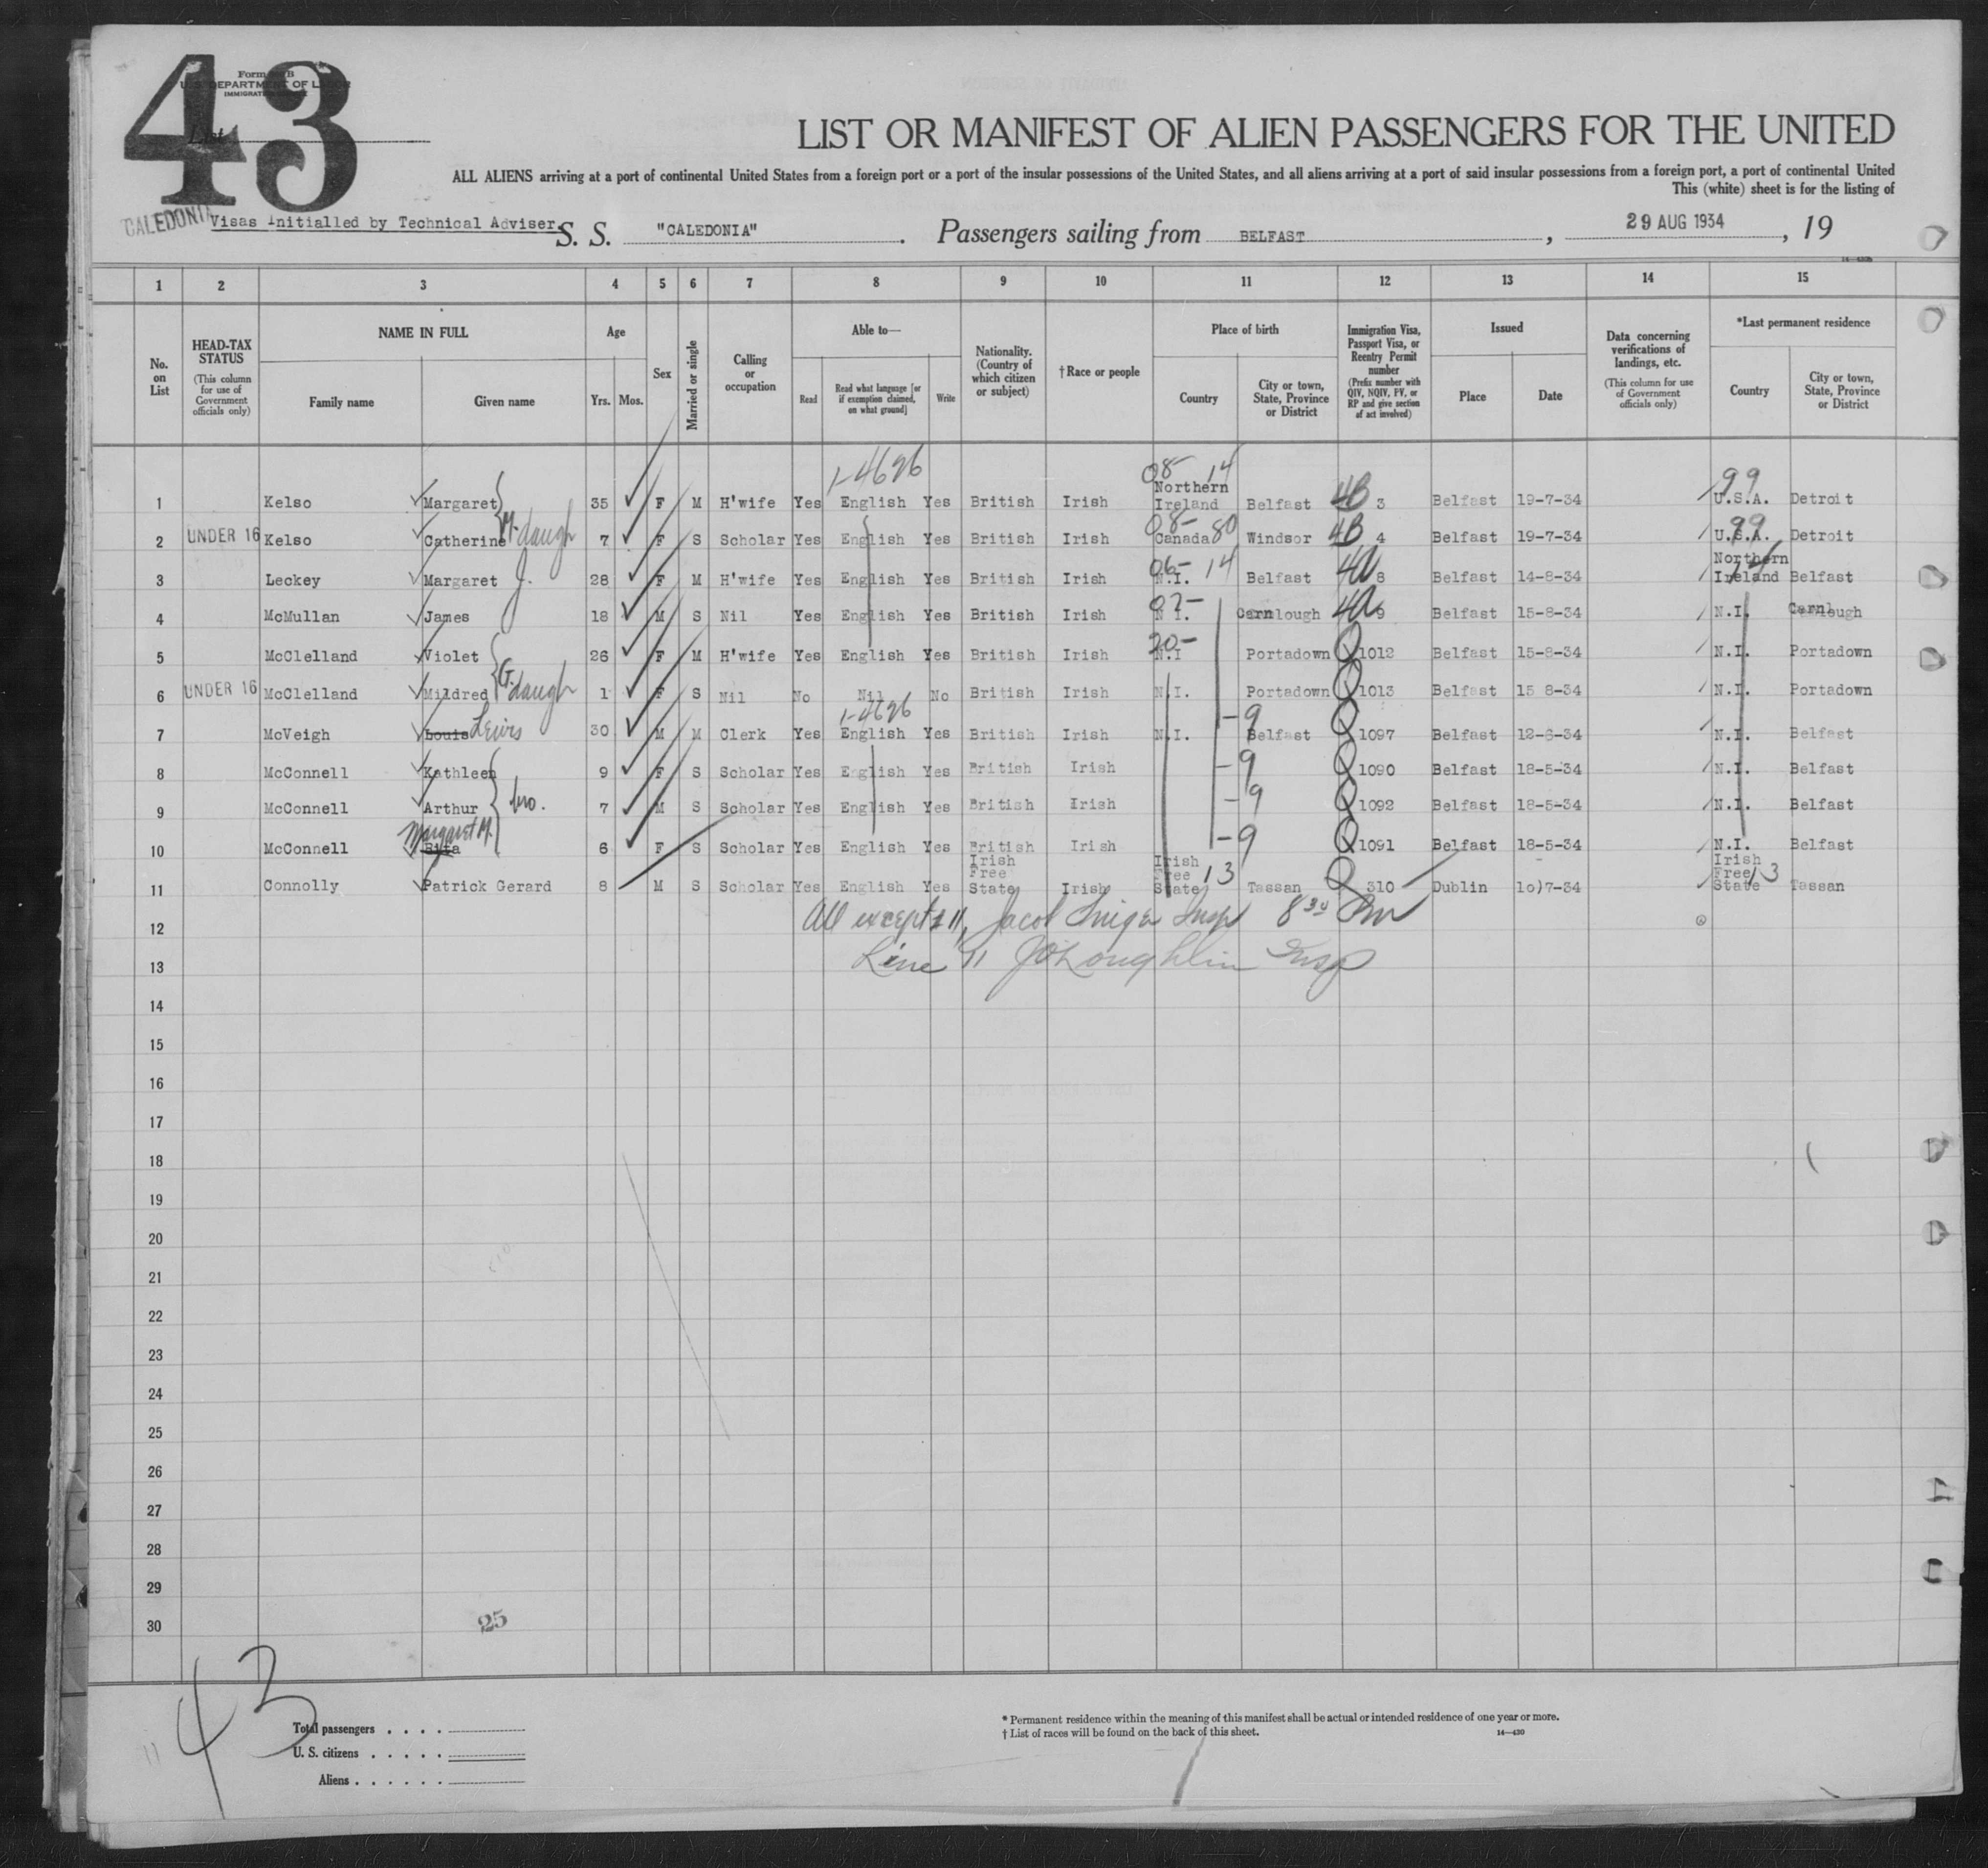 43
Form B
U.S. DEPARTMENT OF LABOR
IMMIGRATION
List
LIST OR MANIFEST OF ALIEN PASSENGERS FOR THE UNITED
ALL ALIENS arriving at a port of continental United States from a foreign port or a port of the insular possessions of the United States, and all aliens arriving at a port of said insular possessions from a foreign port, a port of continental United
This (white) sheet is for the listing of
CALEDONIA Visas Initialled by Technical Adviser. S. S. "CALEDONIA". Passengers sailing from BELFAST, 29 AUG 1934, 19
1 2 3 4 5 6 7 8 9 10 11 12 13 14 15
No. on List
HEAD-TAX STATUS
(This column for use of Government officials only)
NAME IN FULL
Family name Given name
Age
Yrs. Mos.
Sex
Married or single
Calling or occupation
Able to—
Read Read what language [or if exemption claimed, on what ground] Write
Nationality. (Country of which citizen or subject)
†Race or people
Place of birth
Country City or town, State, Province or District
Immigration Visa, Passport Visa, or Reentry Permit number
(Prefix number with QIV, NQIV, PV, or RP and give section of act involved)
Issued
Place Date
Data concerning verifications of landings, etc.
(This column for use of Government officials only)
*Last permanent residence
Country City or town, State, Province or District
1-4696 08- 14 99
1 Kelso Margaret 35 F M H'wife Yes English Yes British Irish Northern Ireland Belfast 4B 3 Belfast 19-7-34 U.S.A. Detroit
2 UNDER 16 Kelso Catherine M. daugh 7 F S Scholar Yes English Yes British Irish 08- Canada 80 Windsor 4B 4 Belfast 19-7-34 99 U.S.A. Detroit
3 Leckey Margaret J. 28 F M H'wife Yes English Yes British Irish 06- 14 N.I. Belfast 4a 8 Belfast 14-8-34 Northern Ireland 14 Belfast
4 McMullan James 18 M S Nil Yes English Yes British Irish 07- N I. Carnlough 4a 9 Belfast 15-8-34 N.I. Carnlough
5 McClelland Violet 26 F M H'wife Yes English Yes British Irish 20- N.I Portadown Q 1012 Belfast 15-8-34 N.I. Portadown
6 UNDER 16 McClelland Mildred G. daugh 1 F S Nil No Nil No British Irish N.I. Portadown Q 1013 Belfast 15 8-34 N.I. Portadown
1-4696
7 McVeigh Louis Lewis 30 M M Clerk Yes English Yes British Irish N.I. -9 Belfast Q 1097 Belfast 12-6-34 N.I. Belfast
8 McConnell Kathleen 9 F S Scholar Yes English Yes British Irish -9 Q 1090 Belfast 18-5-34 N.I. Belfast
9 McConnell Arthur bro. 7 M S Scholar Yes English Yes British Irish -9 Q 1092 Belfast 18-5-34 N.I. Belfast
10 McConnell Margaret M. Rita 6 F S Scholar Yes English Yes British Irish -9 Q 1091 Belfast 18-5-34 N.I. Belfast
11 Connolly Patrick Gerard 8 M S Scholar Yes English Yes Irish Free State Irish Irish Free State 13 Tassan Q 310 Dublin 10)7-34 Irish Free State 13 Tassan
12 All except 11, Jacob Insp 8 30
13 Line 11 J O'Loughlin Insp
14
15
16
17
18
19
20
21
22
23
24
25
26
27
28
29
30
25
43
11
Total passengers . . . .
U. S. citizens . . . . .
Aliens . . . . . .
* Permanent residence within the meaning of this manifest shall be actual or intended residence of one year or more.
† List of races will be found on the back of this sheet. 14—430